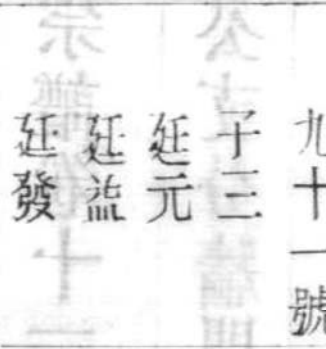 九十一號
子三
廷元
廷益
廷發